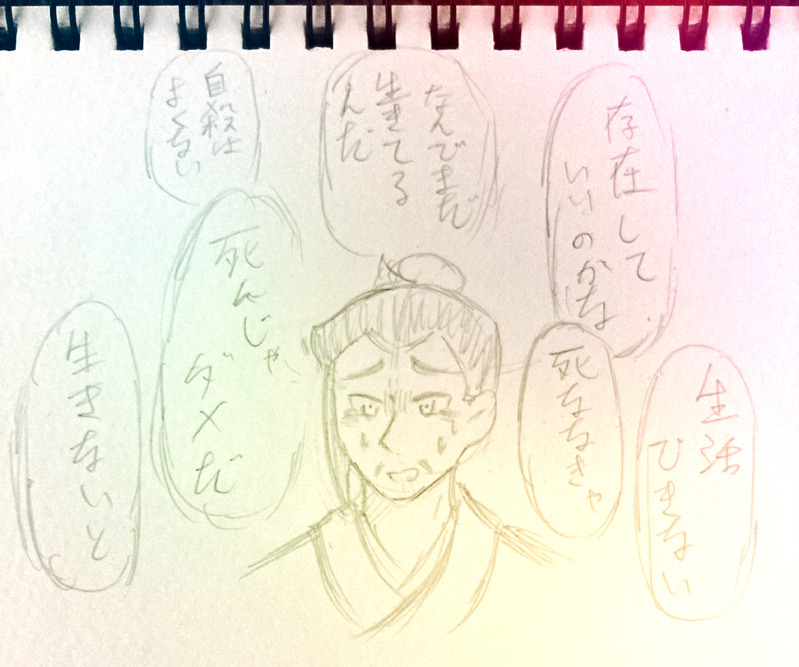 存在して
いいのかな
なんでまだ
生きてる
んだ
自殺は
よくない
生活
できない
死ななきゃ
死んじゃ
ダメだ
生きないと